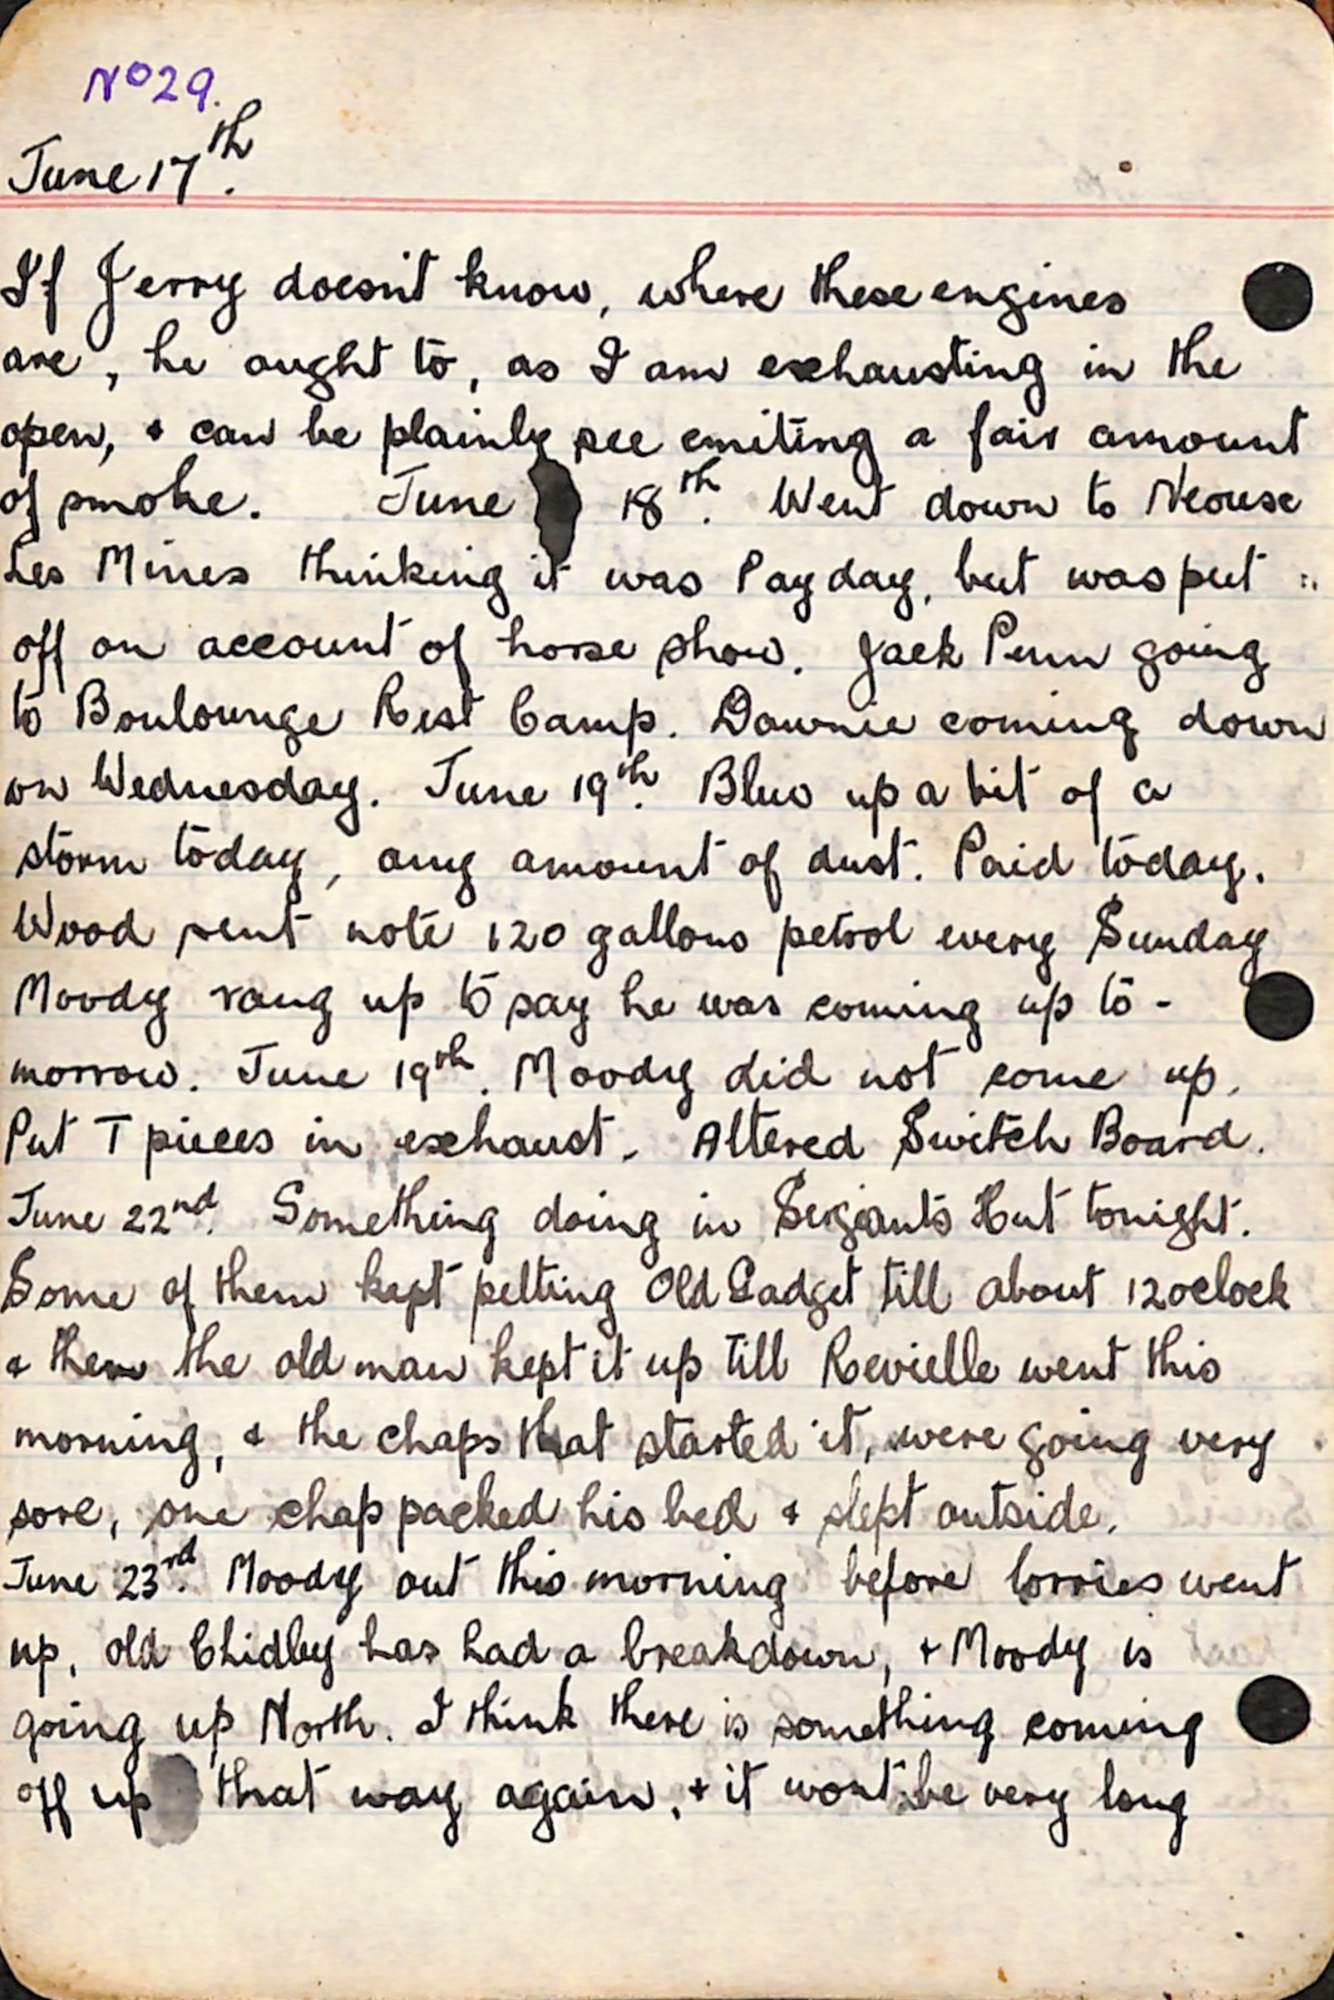 No 29.
June 17th.
If Jerry doesn't know, where these engines
are, he ought to, as I am exhausting in the
open, & can be plainly see emiting a fair amount
of smoke. June 18th. Went down to Neouse
Les Mines thinking it was Payday, but was put
off on account of horse show. Jack Penn going
to Boulounge Rest Camp. Downie coming down
on Wednesday. June 19th. Blew up a bit of a
storm today, any amount of dust. Paid today.
Wood sent note 120 gallons petrol every Sunday
Moody rang up to say he was coming up to-
morrow. June 19th. Moody did not come up.
Put T pieces in exhaust. Altered Switch Board.
June 22nd. Something doing in Sergeants Hut tonight.
Some of them kept pelting Old Gadget till about 12oclock
& then the old man kept it up till Revielle went this
morning, & the chaps that started it, were going very
sore, one chap packed his bed & slept outside.
June 23rd. Moody out this morning before lorries went
up, old Chidley has had a breakdown, & Moody is
going up North. I think there is something coming
off up that way again, & it wont be very long